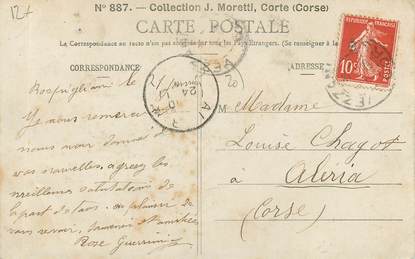 12+
N° 887. - Collection J. Moretti, Corte (Corse)
CARTE POSTALE
La Correspondance au recto n'est pas acceptée par tous les Pays Etrangers. (Se renseigner à la
CORRESPONDANCE
ADRESSE
10c
POSTES
Rospigliani le 4
Je vous remercie
nous avoir donné
vos nouvelles, agréez les
meilleures salutations de
la part de tous. au plaisir de
vous revoir, souvenir d'amitiés
Rose Guerrini
M Madame
Louise Chagot
à Aléria
(Corse)